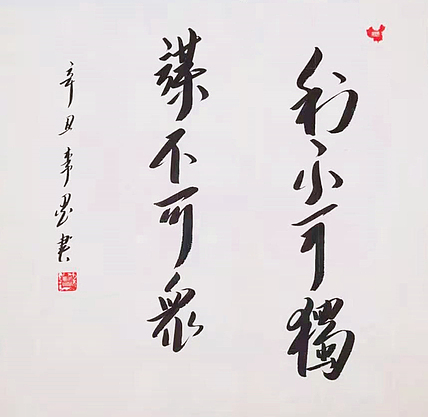 利不可獨
謀不可衆
辛丑李書